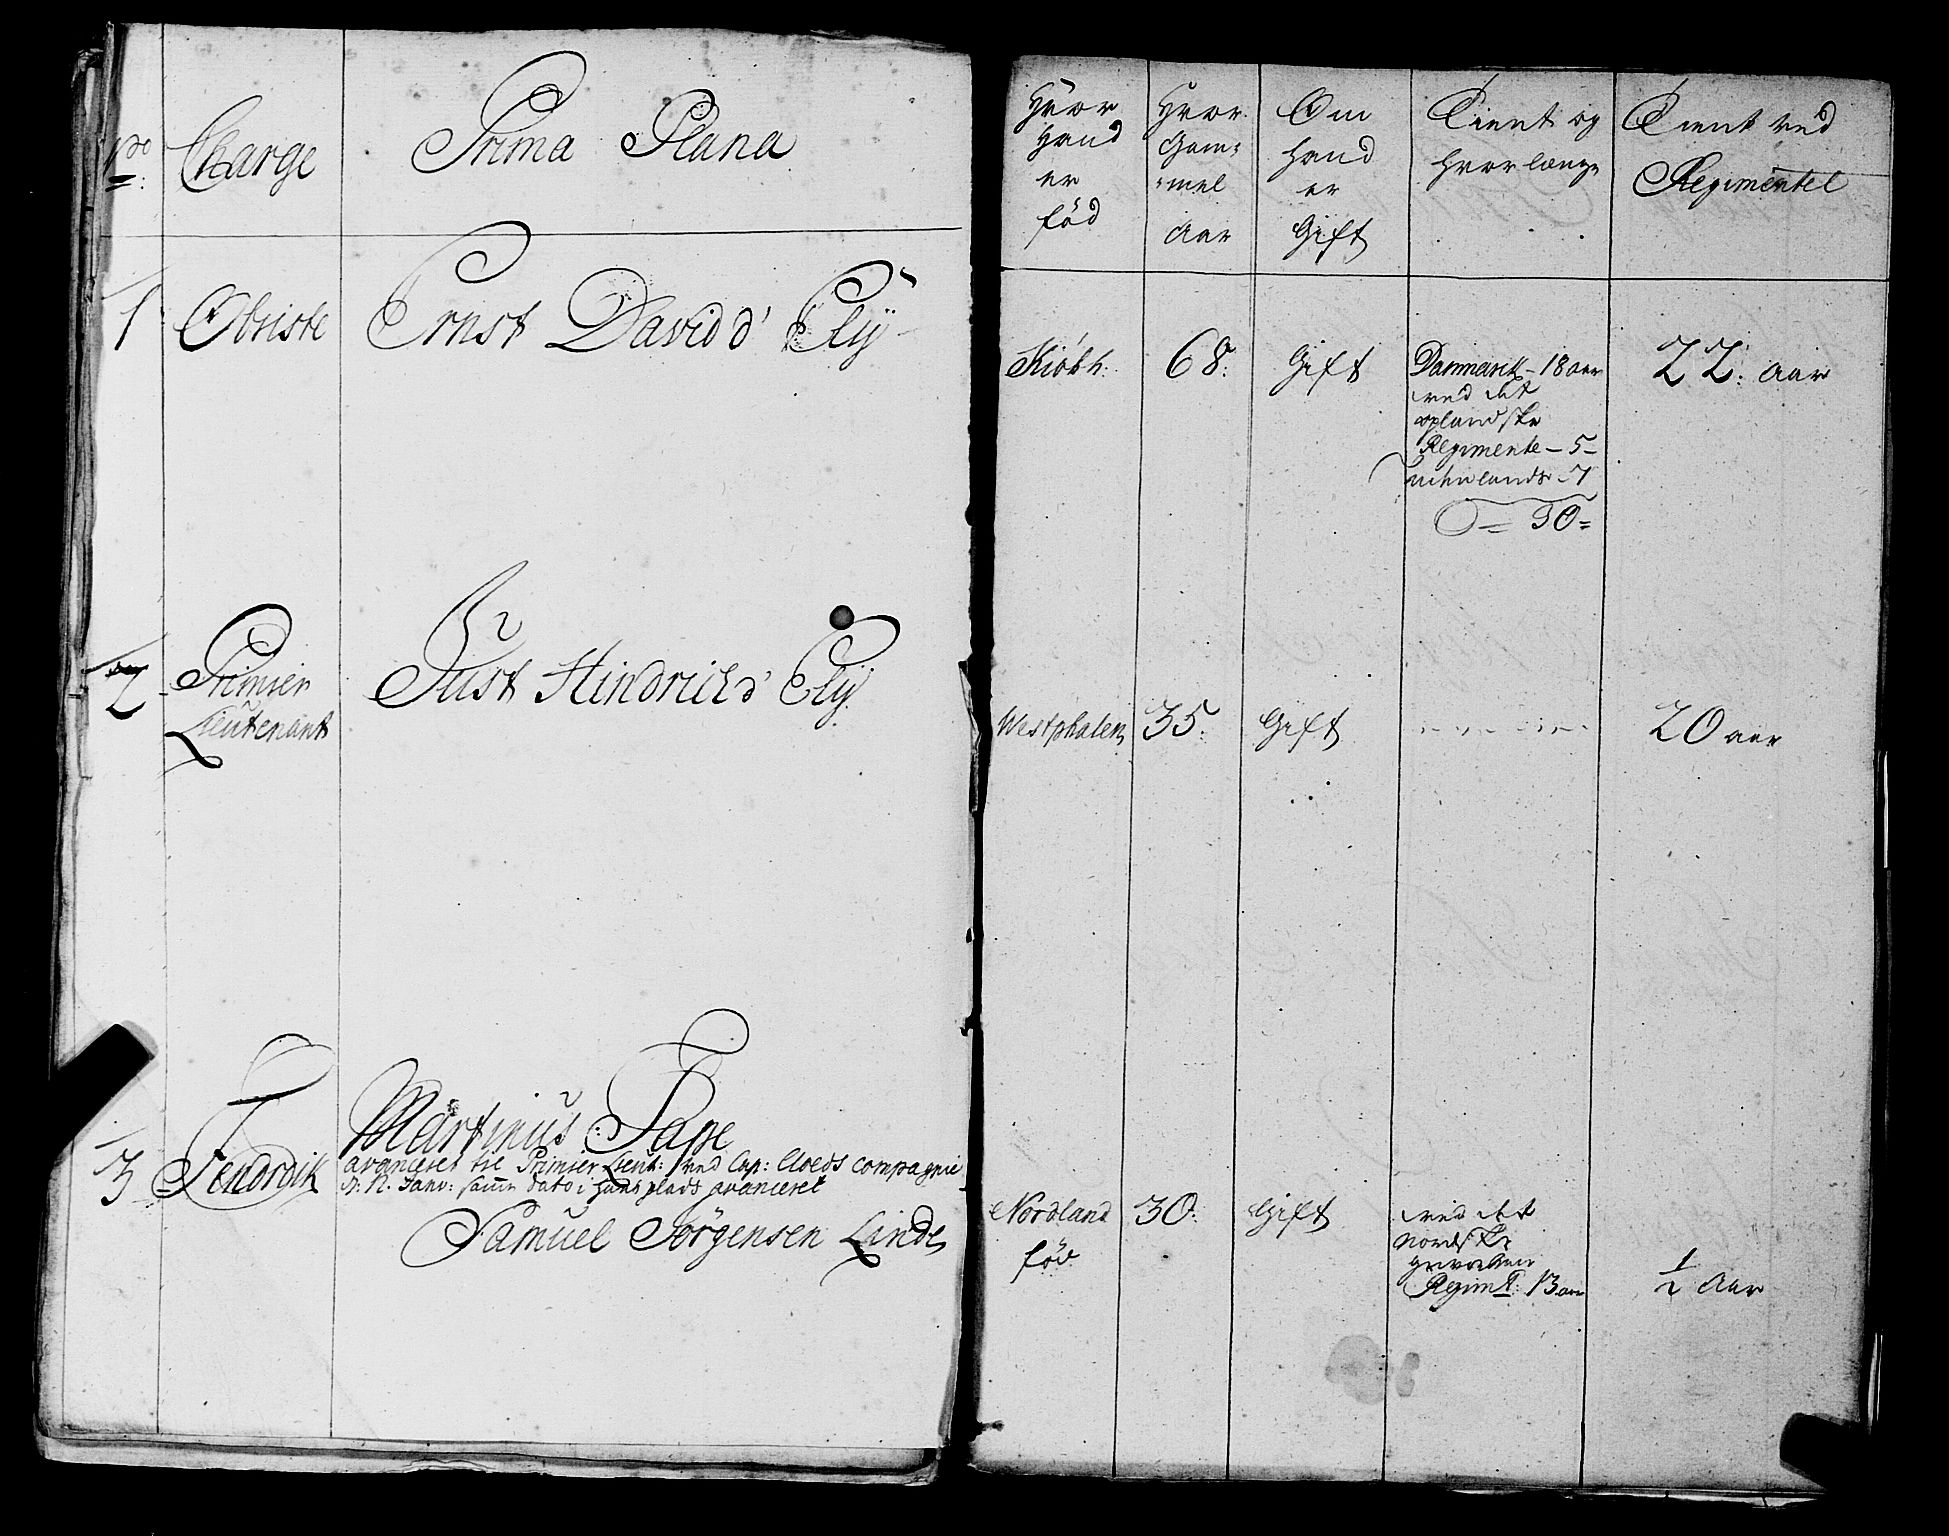 No:
Charge
Prima Plana
Hvor
Hand
er
fód
Hvor
Gam=
=mel
Aar
Om
hand
er
Gift
Tient og
hvor længe
Tient ved
Regimentet
1
Obriste
Ernst David d' Elÿ
Kióbh:
68:
Gift
Danmarck - 18 aar
ved det
oplandske
Regimente - 5 -
udenlands - 7
= 30 =
22: Aar
2
Primier
Lieutenant
Just Hindrich d' Elÿ
Westphalen
35:
Gift
20 aar
3
Fendrick
Martinus Fage
avanceret til Primier Lieut: ved Cap: Cloeds compagnie
Janv: samme dato i hans plads avanceret
Samuel Jörgensen Linde
Nordland
fód
30:
Gift
ved det
Nordske
gevorbne
Regimt: 13 aar
1/2 Aar